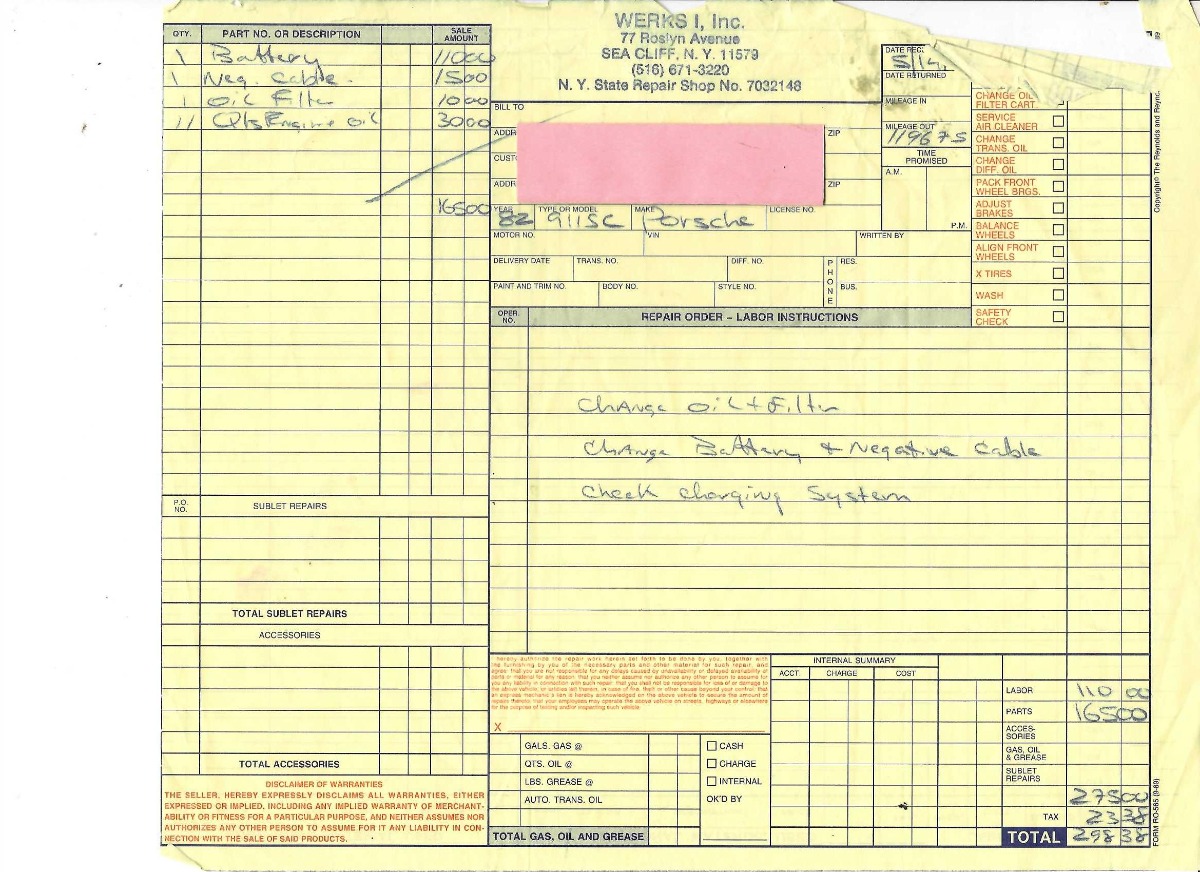 WERKS I, Inc.
77 Roslyn Avenue
SEA CLIFF, N. Y. 11579
(516) 671-3220
N. Y. State Repair Shop No. 7032148
QTY. PART NO. OR DESCRIPTION SALE AMOUNT
1 Battery 11000
1 Neg. Cable. 1500
1 Oil Filter 1000
11 Qts Engine oil 3000
16500
P.O. NO. SUBLET REPAIRS
TOTAL SUBLET REPAIRS
ACCESSORIES
TOTAL ACCESSORIES
DISCLAIMER OF WARRANTIES
THE SELLER, HEREBY EXPRESSLY DISCLAIMS ALL WARRANTIES, EITHER
EXPRESSED OR IMPLIED, INCLUDING ANY IMPLIED WARRANTY OF MERCHANT-
ABILITY OR FITNESS FOR A PARTICULAR PURPOSE, AND NEITHER ASSUMES NOR
AUTHORIZES ANY OTHER PERSON TO ASSUME FOR IT ANY LIABILITY IN CON-
NECTION WITH THE SALE OF SAID PRODUCTS.
BILL TO
ADDR ZIP
CUSTO
ADDR ZIP
YEAR TYPE OR MODEL MAKE LICENSE NO.
82 911SC Porsche
MOTOR NO. VIN WRITTEN BY
DELIVERY DATE TRANS. NO. DIFF. NO. PHONE RES.
PAINT AND TRIM NO. BODY NO. STYLE NO. BUS.
DATE REC
5/14
DATE RETURNED
MILEAGE IN
MILEAGE OUT
119675
TIME PROMISED
A.M.
P.M.
CHANGE OIL
FILTER CART.
SERVICE
AIR CLEANER
CHANGE
TRANS. OIL
CHANGE
DIFF. OIL
PACK FRONT
WHEEL BRGS.
ADJUST
BRAKES
BALANCE
WHEELS
ALIGN FRONT
WHEELS
X TIRES
WASH
SAFETY
CHECK
OPER. NO. REPAIR ORDER – LABOR INSTRUCTIONS
Change oil + Filter
Change Battery + Negative Cable
Check charging System
I hereby authorize the repair work herein set forth to be done by you, together with
the furnishing by you of the necessary parts and other material for such repair, and
agree: that you are not responsible for any delays caused by unavailability or delayed availability of
parts or material for any reason; that you neither assume nor authorize any other person to assume for
you any liability in connection with such repair; that you shall not be responsible for loss of or damage to
the above vehicle, or articles left therein, in case of fire, theft or other cause beyond your control; that
an express mechanic's lien is hereby acknowledged on the above vehicle to secure the amount of
repairs thereto; that your employees may operate the above vehicle on streets, highways or elsewhere
for the purpose of testing and/or inspecting such vehicle.
X
GALS. GAS @
QTS. OIL @
LBS. GREASE @
AUTO. TRANS. OIL
TOTAL GAS, OIL AND GREASE
CASH
CHARGE
INTERNAL
OK'D BY
INTERNAL SUMMARY
ACCT. CHARGE COST
LABOR 110 00
PARTS 16500
ACCES-
SORIES
GAS, OIL
& GREASE
SUBLET
REPAIRS
27500
TAX 2338
TOTAL 298 38
Copyright© The Reynolds and Reyno
FORM RO-585 (9-89)